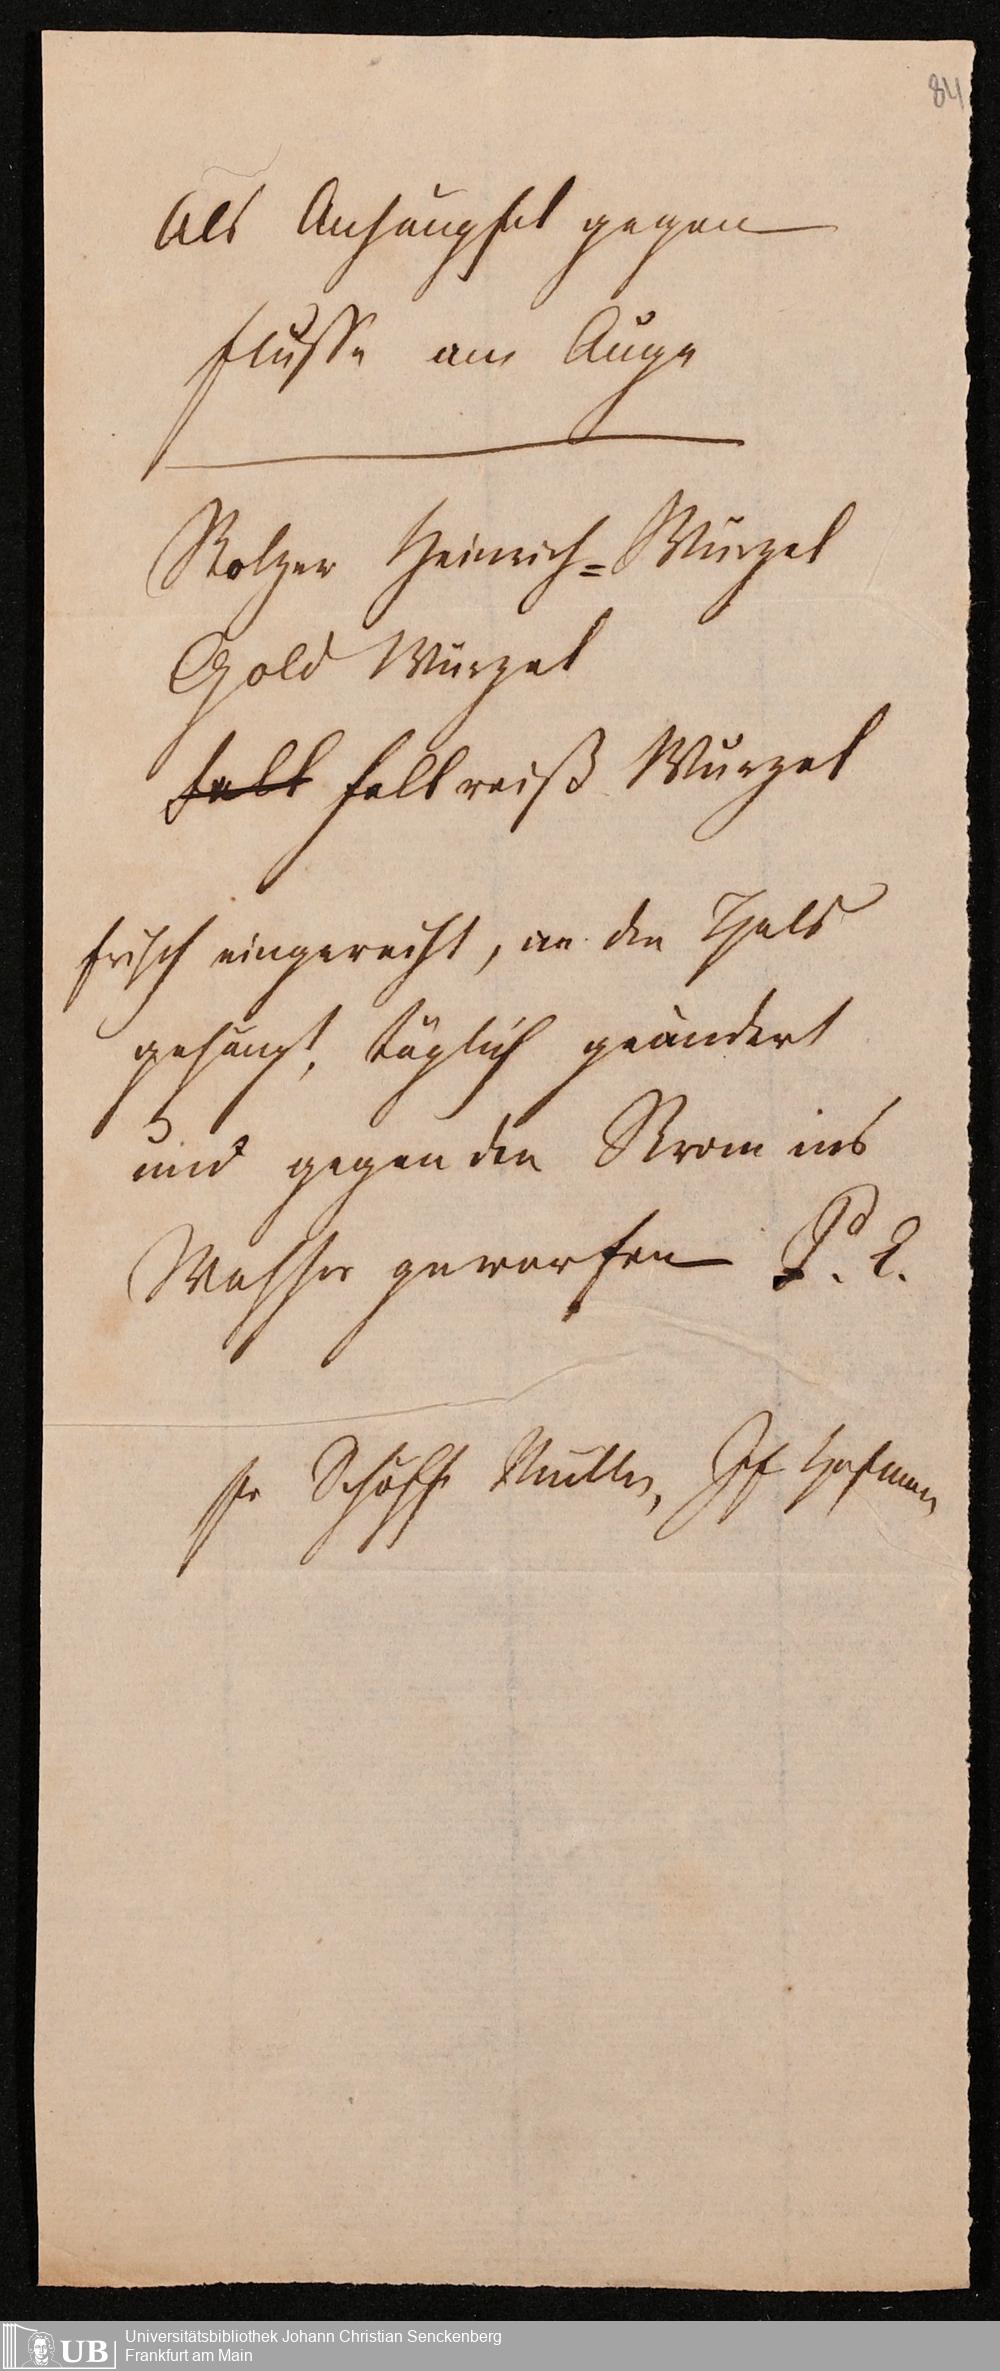 84
Als Anhängsel gegen
Flüsse am Auge
Stolzer Heinrich=Wurzel
Gold Wurzel
falb feldreiß Wurzel
frisch eingereiht, an den Hals
gehängt, täglich geändert
und gegen den Strom ins
Wasser geworfen P.
Schöff Müller, Hofmann
Universitätsbibliothek Johann Christian Senckenberg
Frankfurt am Main
UB